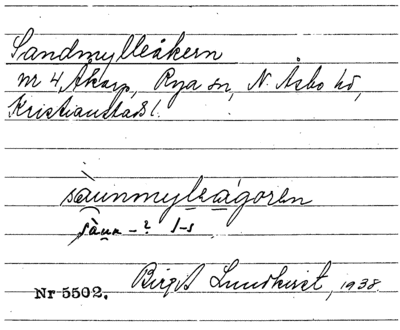 Sandmylleåkern
nr 4, Åkarp, Rya sn, N. Åsbo hd,
Kristianstads l.
sàunmyleágoren
sàun - ? l-s
Nr 5502. Birgit Lundkvist, 1938.